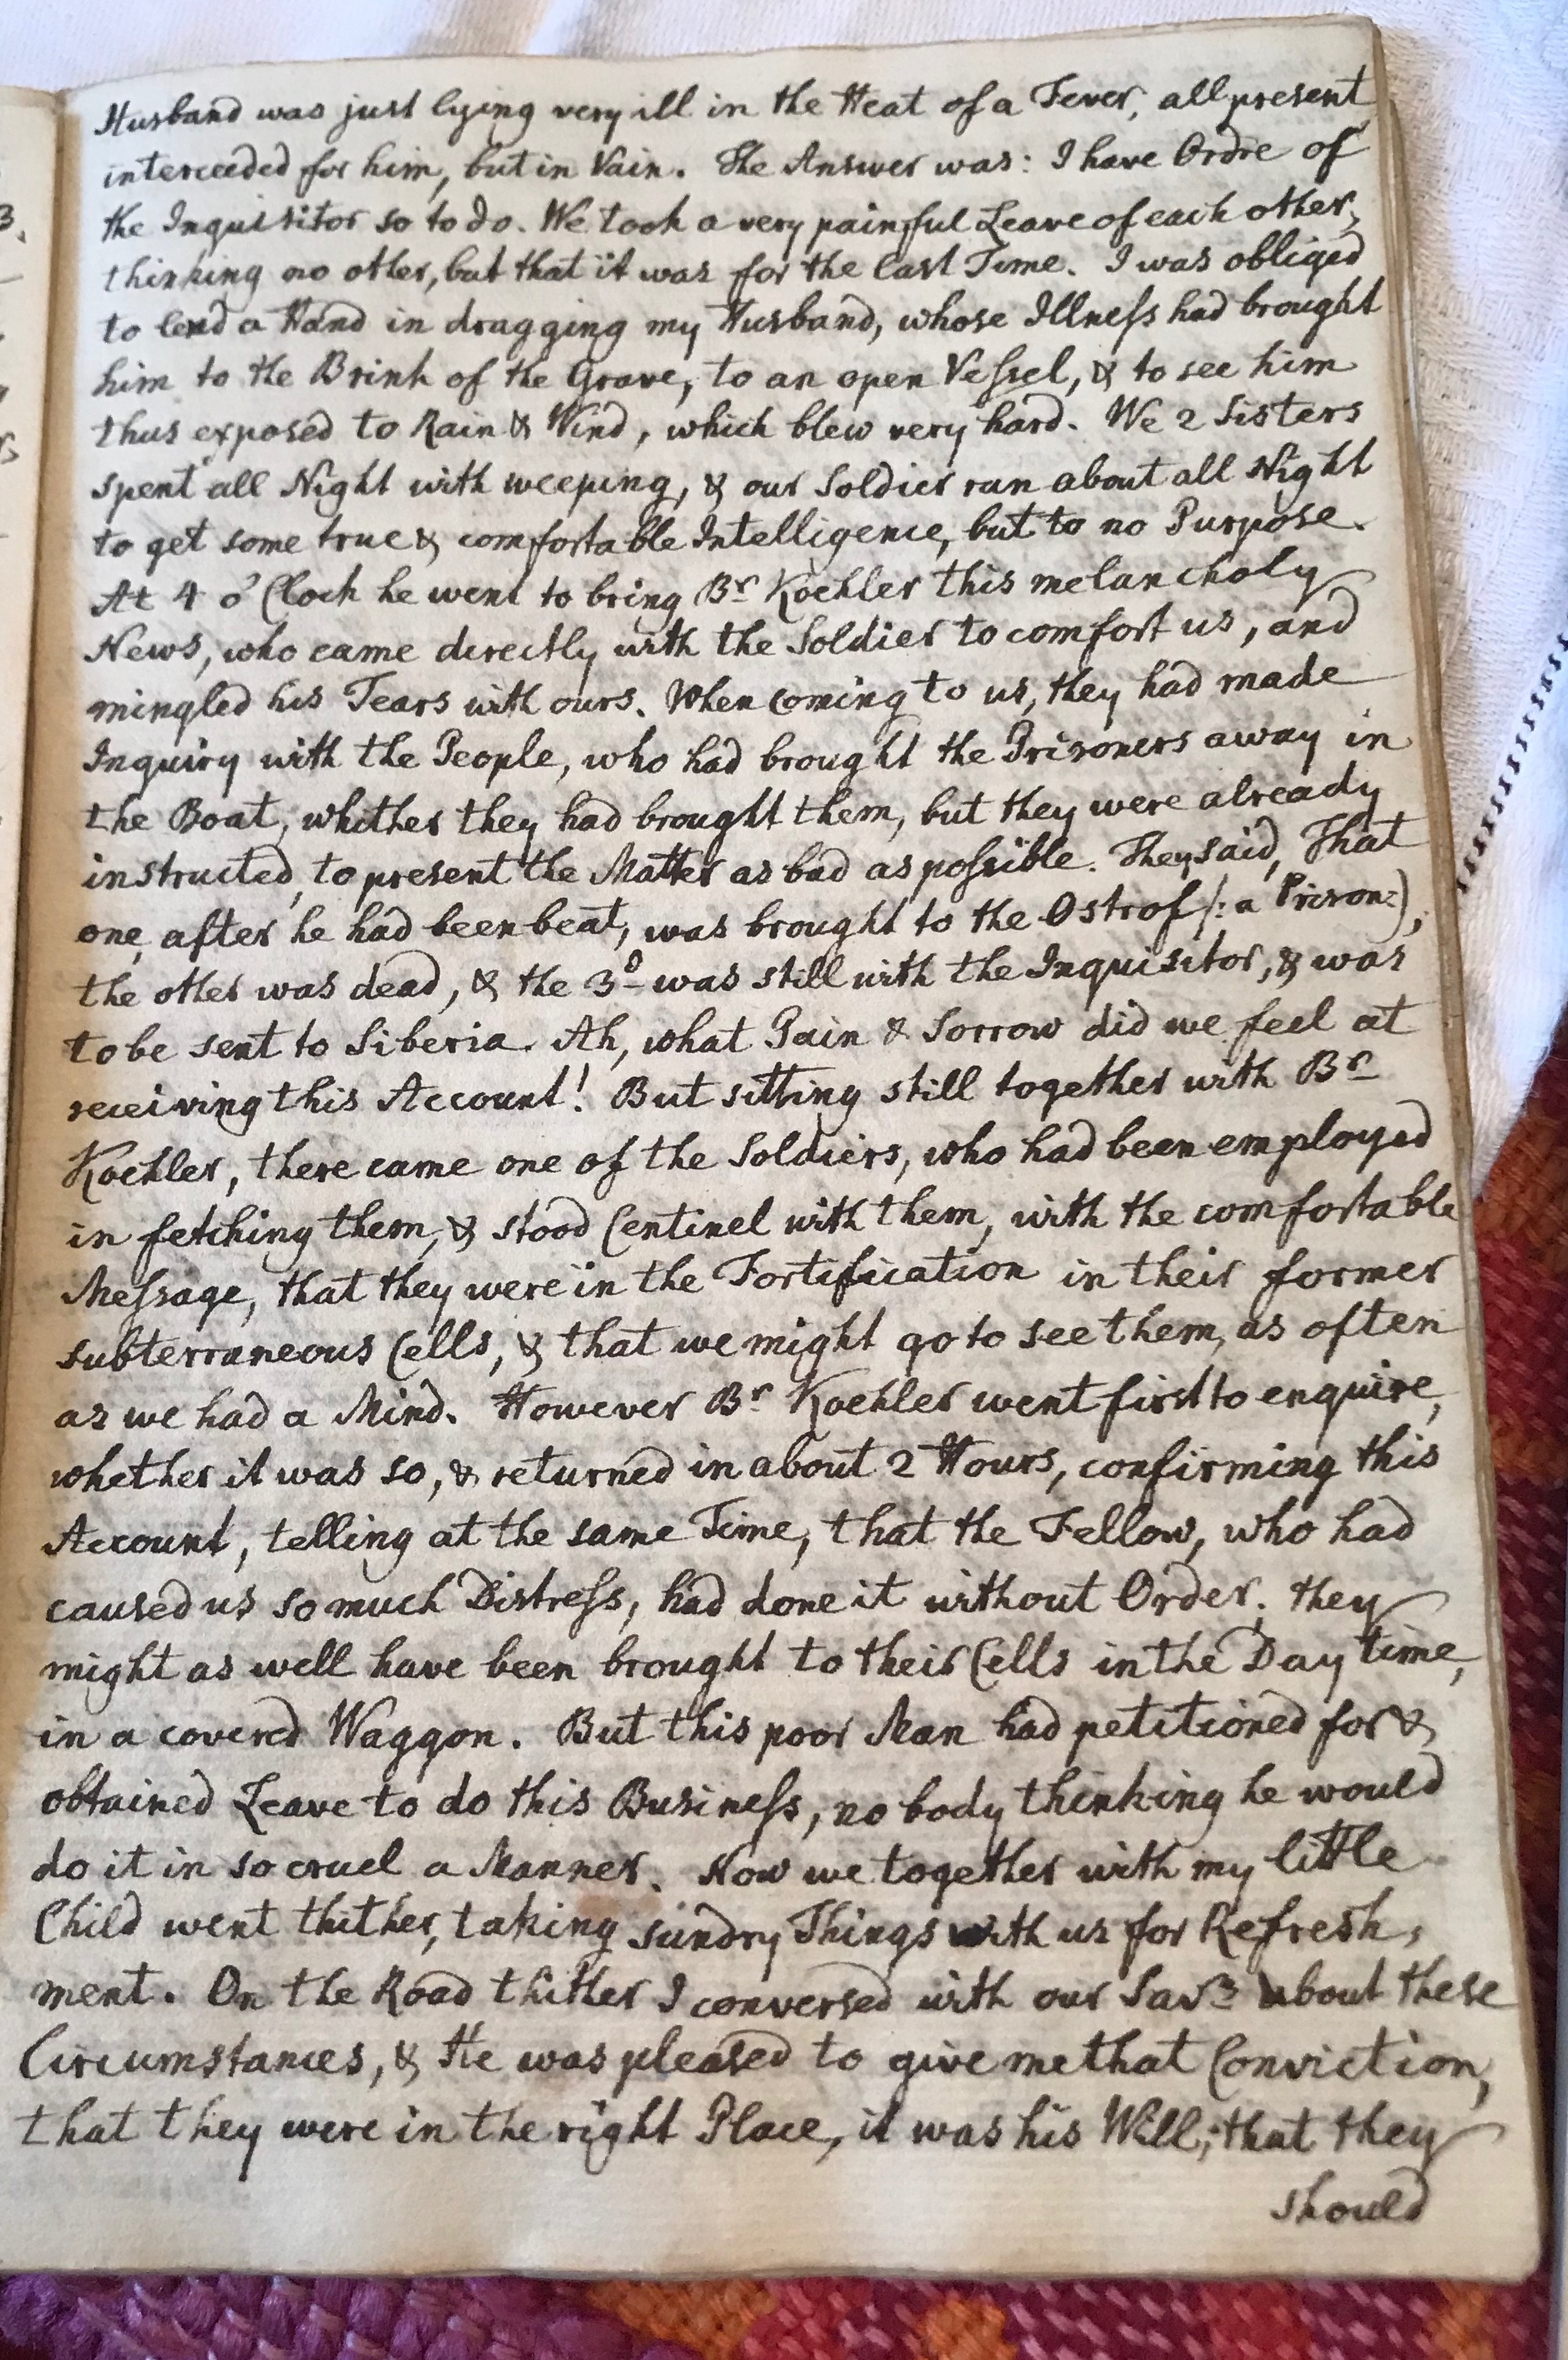 Husband was just lying very ill in the Heat of a Fever, all present
interceeded for him, but in Vain. The Answer was: I have Ordre of
the Inquisitor so to do. We took a very painful Leave of each other,
thinking no other, but that it was for the last Time. I was obliged
to lend a Hand in dragging my Husband, whose Illneſs had brought
him to the Brink of the Grave, to an open Veſsel, & to see him
thus exposed to Rain & Wind, which blew very hard. We 2 Sisters
spent all Night with weeping, & our Soldier run about all Night
to get some true & comfortable Intelligence, but to no Purpose.
At 4 o'Clock he went to bring Br Koehler this melancholy
News, who came directly with the Soldier to comfort us, and
mingled his Tears with ours. When coming to us, they had made
Inquiry with the People, who had brought the Prisoners away in
the Boat, whither they had brought them, but they were already
instructed, to present the Matter as bad as poſsible. They said, That
one, after he had been beat, was brought to the Ostrof /: a Prison:),
the other was dead, & the 3d was still with the Inquisitor, & was
to be sent to Siberia. Ah, what Pain & Sorrow did we feel at
receiving this Account! But sitting still together with Br
Koehler, there came one of the Soldiers, who had been employed
in fetching them, & stood Centinel with them, with the comfortable
Meſsage, that they were in the Fortification in their former
subterraneous Cells, & that we might go to see them, as often
as we had a Mind. However Br Koehler went first to enquire,
whether it was so, & returned in about 2 Hours, confirming this
Account, telling at the same Time, that the Fellow, who had
caused us so much Distreſs, had done it without Order; they
might as well have been brought to their Cells in the Day time,
in a covered Waggon. But this poor Man had petitioned for &
obtained Leave to do this Busineſs, no body thinking he would
do it in so cruel a Manner. Now we together with my little
Child went thither, taking sundry Things with us for Refresh,
ment. On the Road thither I conversed with our Savr about these
Circumstances, & He was pleased to give me that Conviction,
that they were in the right Place, it was his Will, that they
should